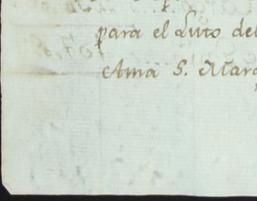 para el Luto del
Ama S. Marg